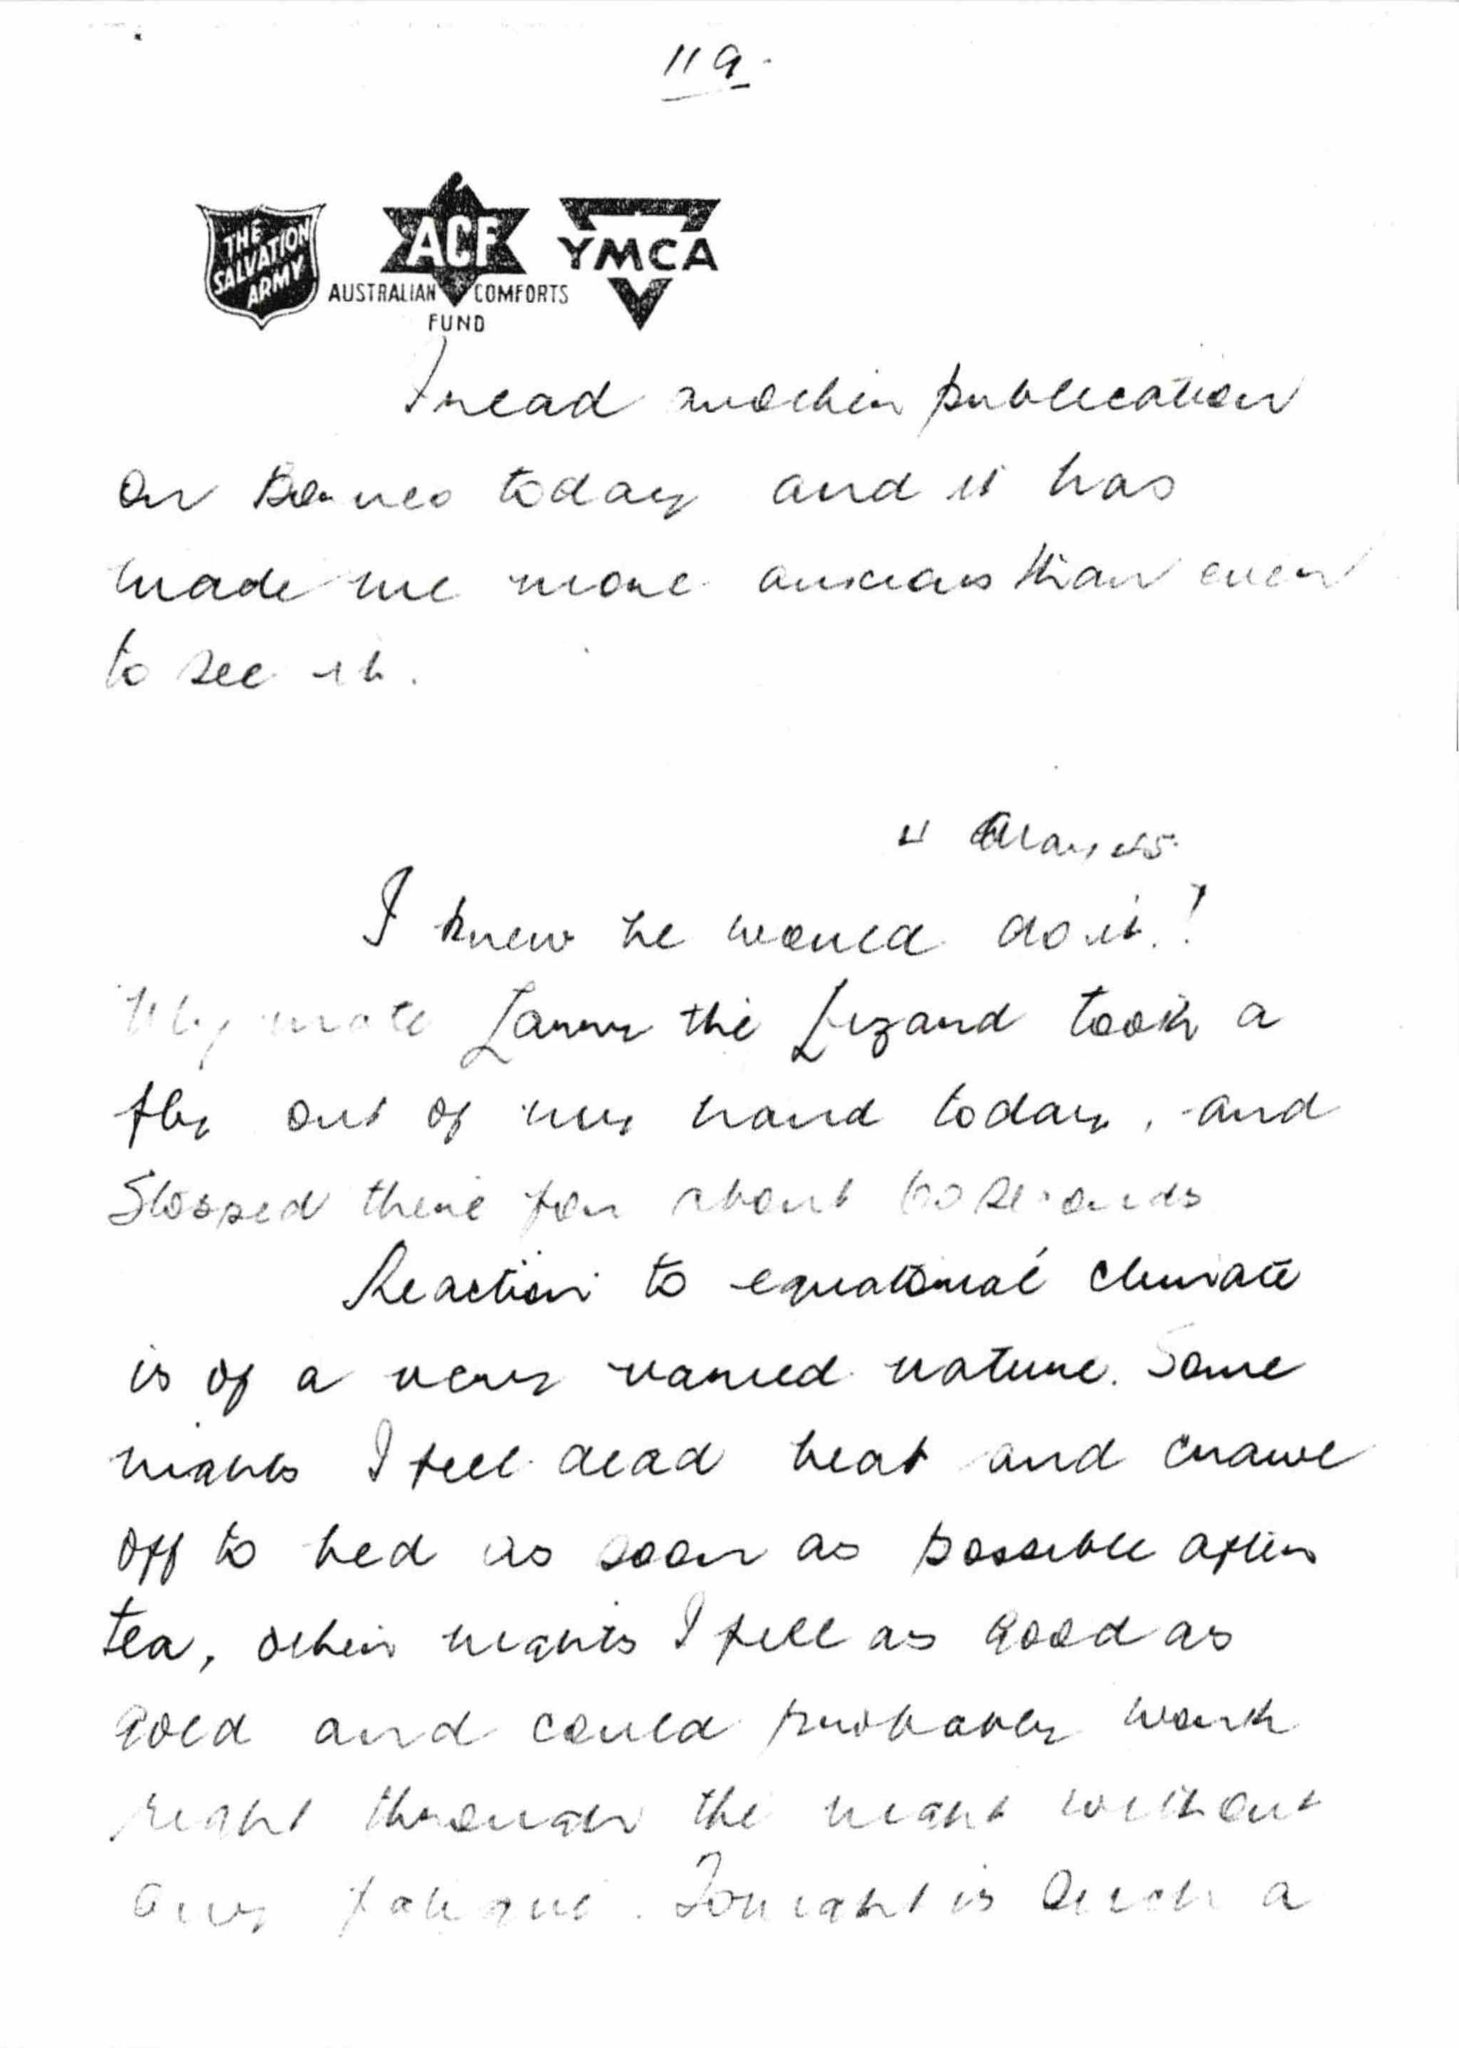 119.
THE SALVATION ARMY
ACF
AUSTRALIAN COMFORTS FUND
YMCA
I read another publication
on Borneo today and it has
made me more anxious than ever
to see it.
4 May 45.
I knew he would do it!
My mate Larry the Lizard took a
fly out of my hand today, and
stopped there for about 60 seconds
Reaction to equatorial climate
is of a very varied nature. Some
nights I feel dead beat and crawl
off to bed as soon as possible after
tea, other nights I feel as good as
gold and could probably work
right through the night without
any fatigue. Tonight is such a